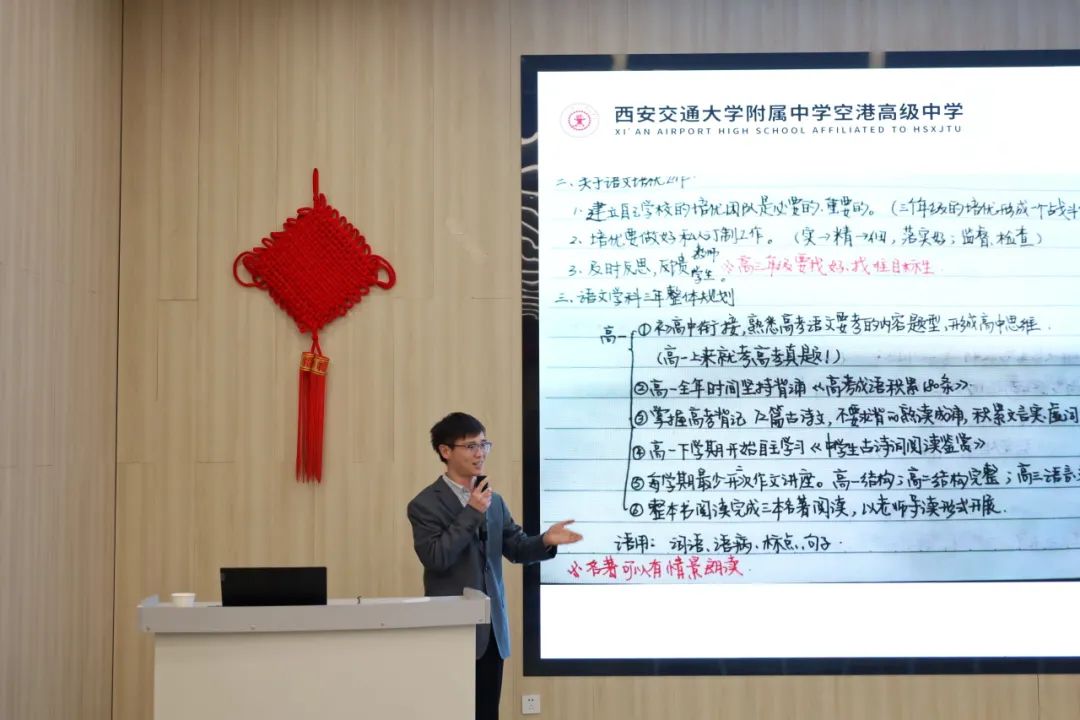 西安交通大学附属中学空港高级中学
XI'AN AIRPORT HIGH SCHOOL AFFILIATED TO HSXJTU
二、关于语文培优工作
1. 建立自主学校的培优团队是必要的、重要的。(三个年级的培优形成一个战斗
2. 培优要做好私人订制工作。(实→精→细,落实好;监督、检查)
3. 及时反思,反馈 教师 学生。 ※高三年级要找好、找准目标生.
三、语文学科三年整体规划
高一 ①初高中衔接,熟悉高考语文要考的内容题型,形成高中思维.
(高一上来就考高考真题!)
②高一全年时间坚持背诵《高考成语积累180条》.
③掌握高考背记72篇古诗文,不要求背的熟读成诵,积累文言实、虚词
④高一下学期开始自主学习《中学生古诗词阅读鉴赏》
⑤每学期最少开次作文讲座。高一结构;高一结构完整;高三语言
⑥整本书阅读完成三本名著阅读,以老师导读形式开展.
语用:词语、语病、标点、句子.
※名著可以有情景朗读.